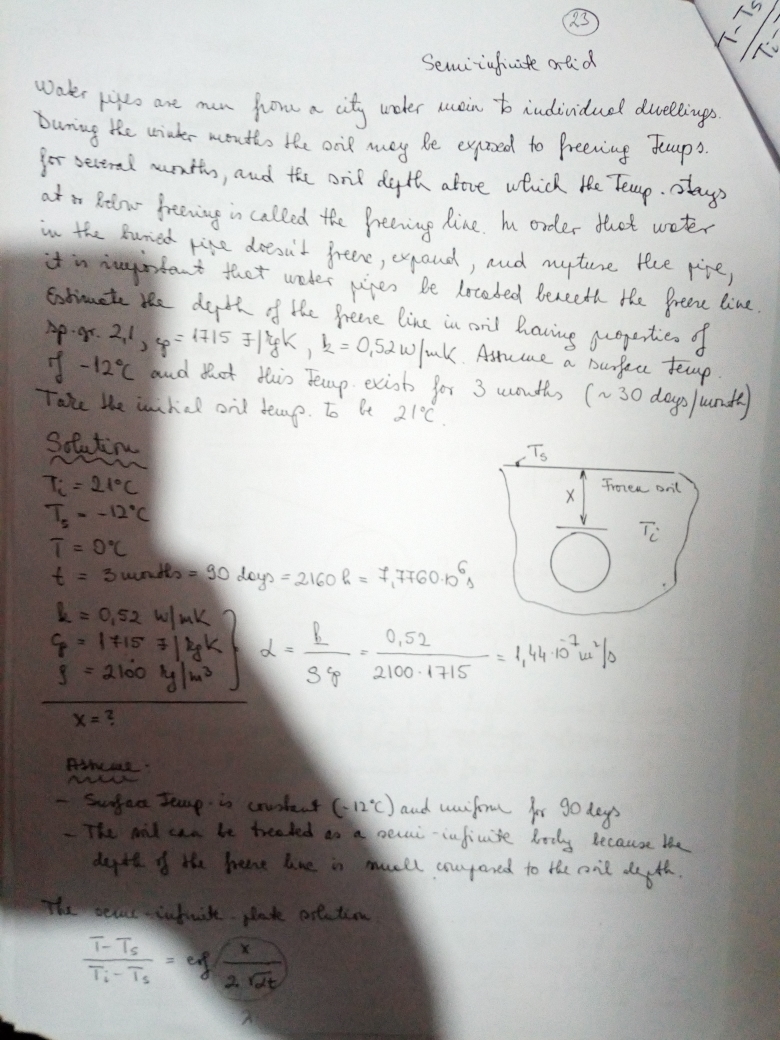 23
T-Ts
Ti-
Semi-infinite solid
Water pipes are run from a city water main to individual dwellings.
During the winter months the soil may be exposed to freezing Temps.
for several months, and the soil depth above which the Temp. stays
at or below freezing is called the freezing line. In order that water
in the buried pipe doesn't freeze, expand, and rupture the pipe,
it is important that water pipes be located beneath the freeze line.
Estimate the depth of the freeze line in soil having properties of
sp.gr. 2,1, cp = 1715 J/kgK, k = 0,52 W/mK. Assume a surface temp.
of -12°C and that this Temp. exists for 3 months (~30 days/month)
Take the initial soil temp. to be 21°C.
Solution
Ti = 21°C
Ts = -12°C
T = 0°C
t = 3 months = 90 days = 2160 h = 7,7760·10⁶ s
Ts
x
Frozen soil
Ti
k = 0,52 W/mK
cp = 1715 J/kgK
ρ = 2100 kg/m³
α = k/ρcp = 0,52/2100·1715 = 1,44·10⁻⁷ m²/s
x = ?
Assume.
- Surface Temp. is constant (-12°C) and uniform for 90 days
- The soil can be treated as a semi-infinite body because the
depth of the freeze line is small compared to the soil depth.
The semi-infinite plate solution
T-Ts/Ti-Ts = erf x/2√αt
λ